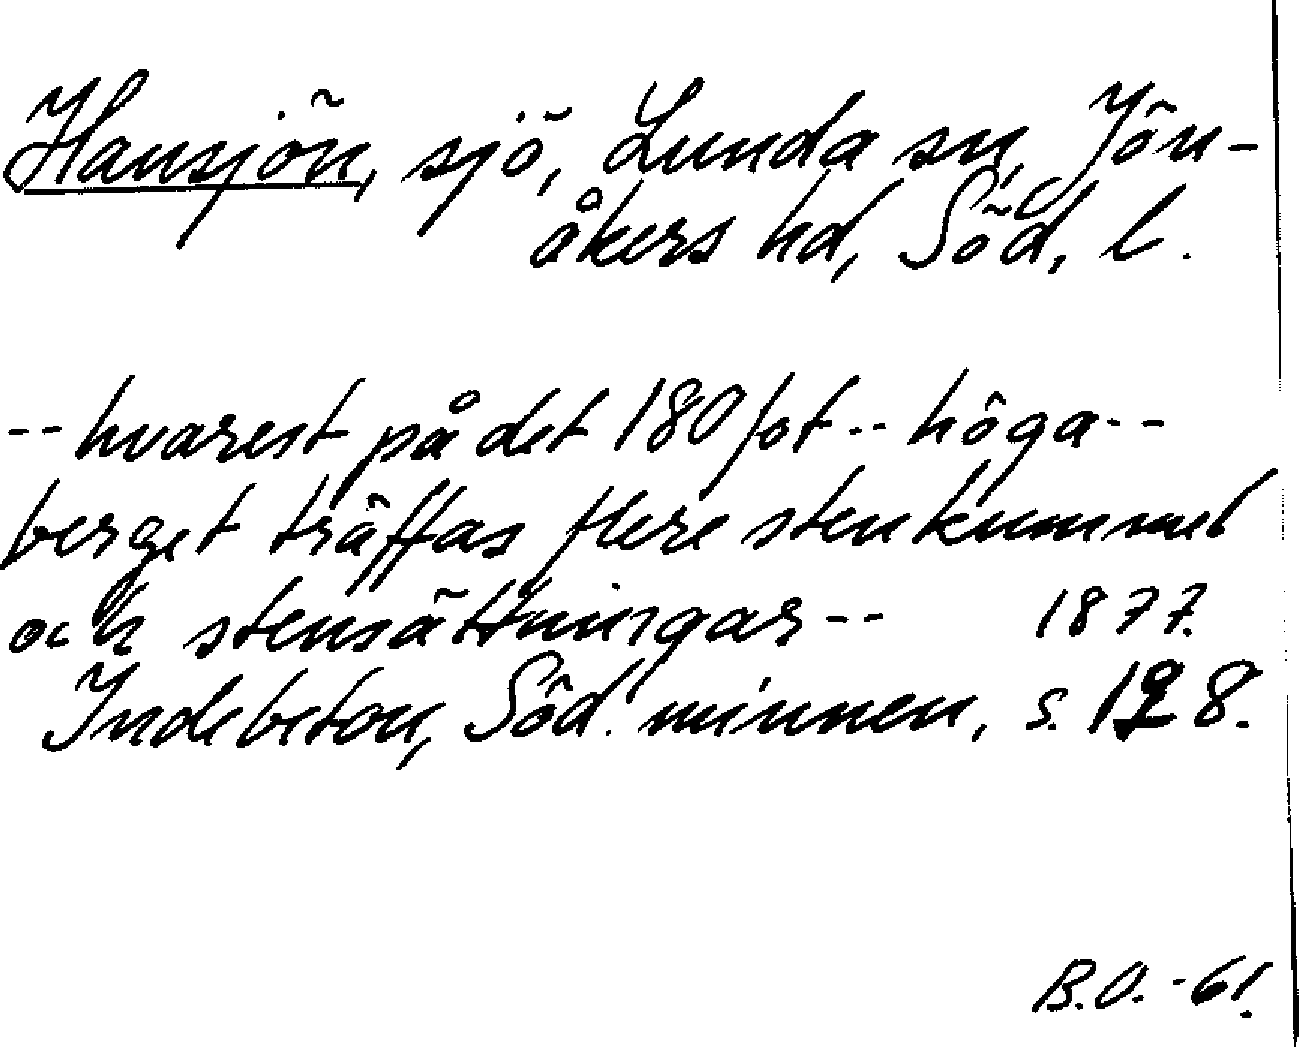 Hansjön, sjö, Lunda sn, Jön-
åkers hd, Söd, l.
--hvarest på det 180 fot -- höga --
berget träffas flere stenkummel
och stensättningar-- 1877.
Indebetou, Söd. minnen, s. 128.
B.O. -61.